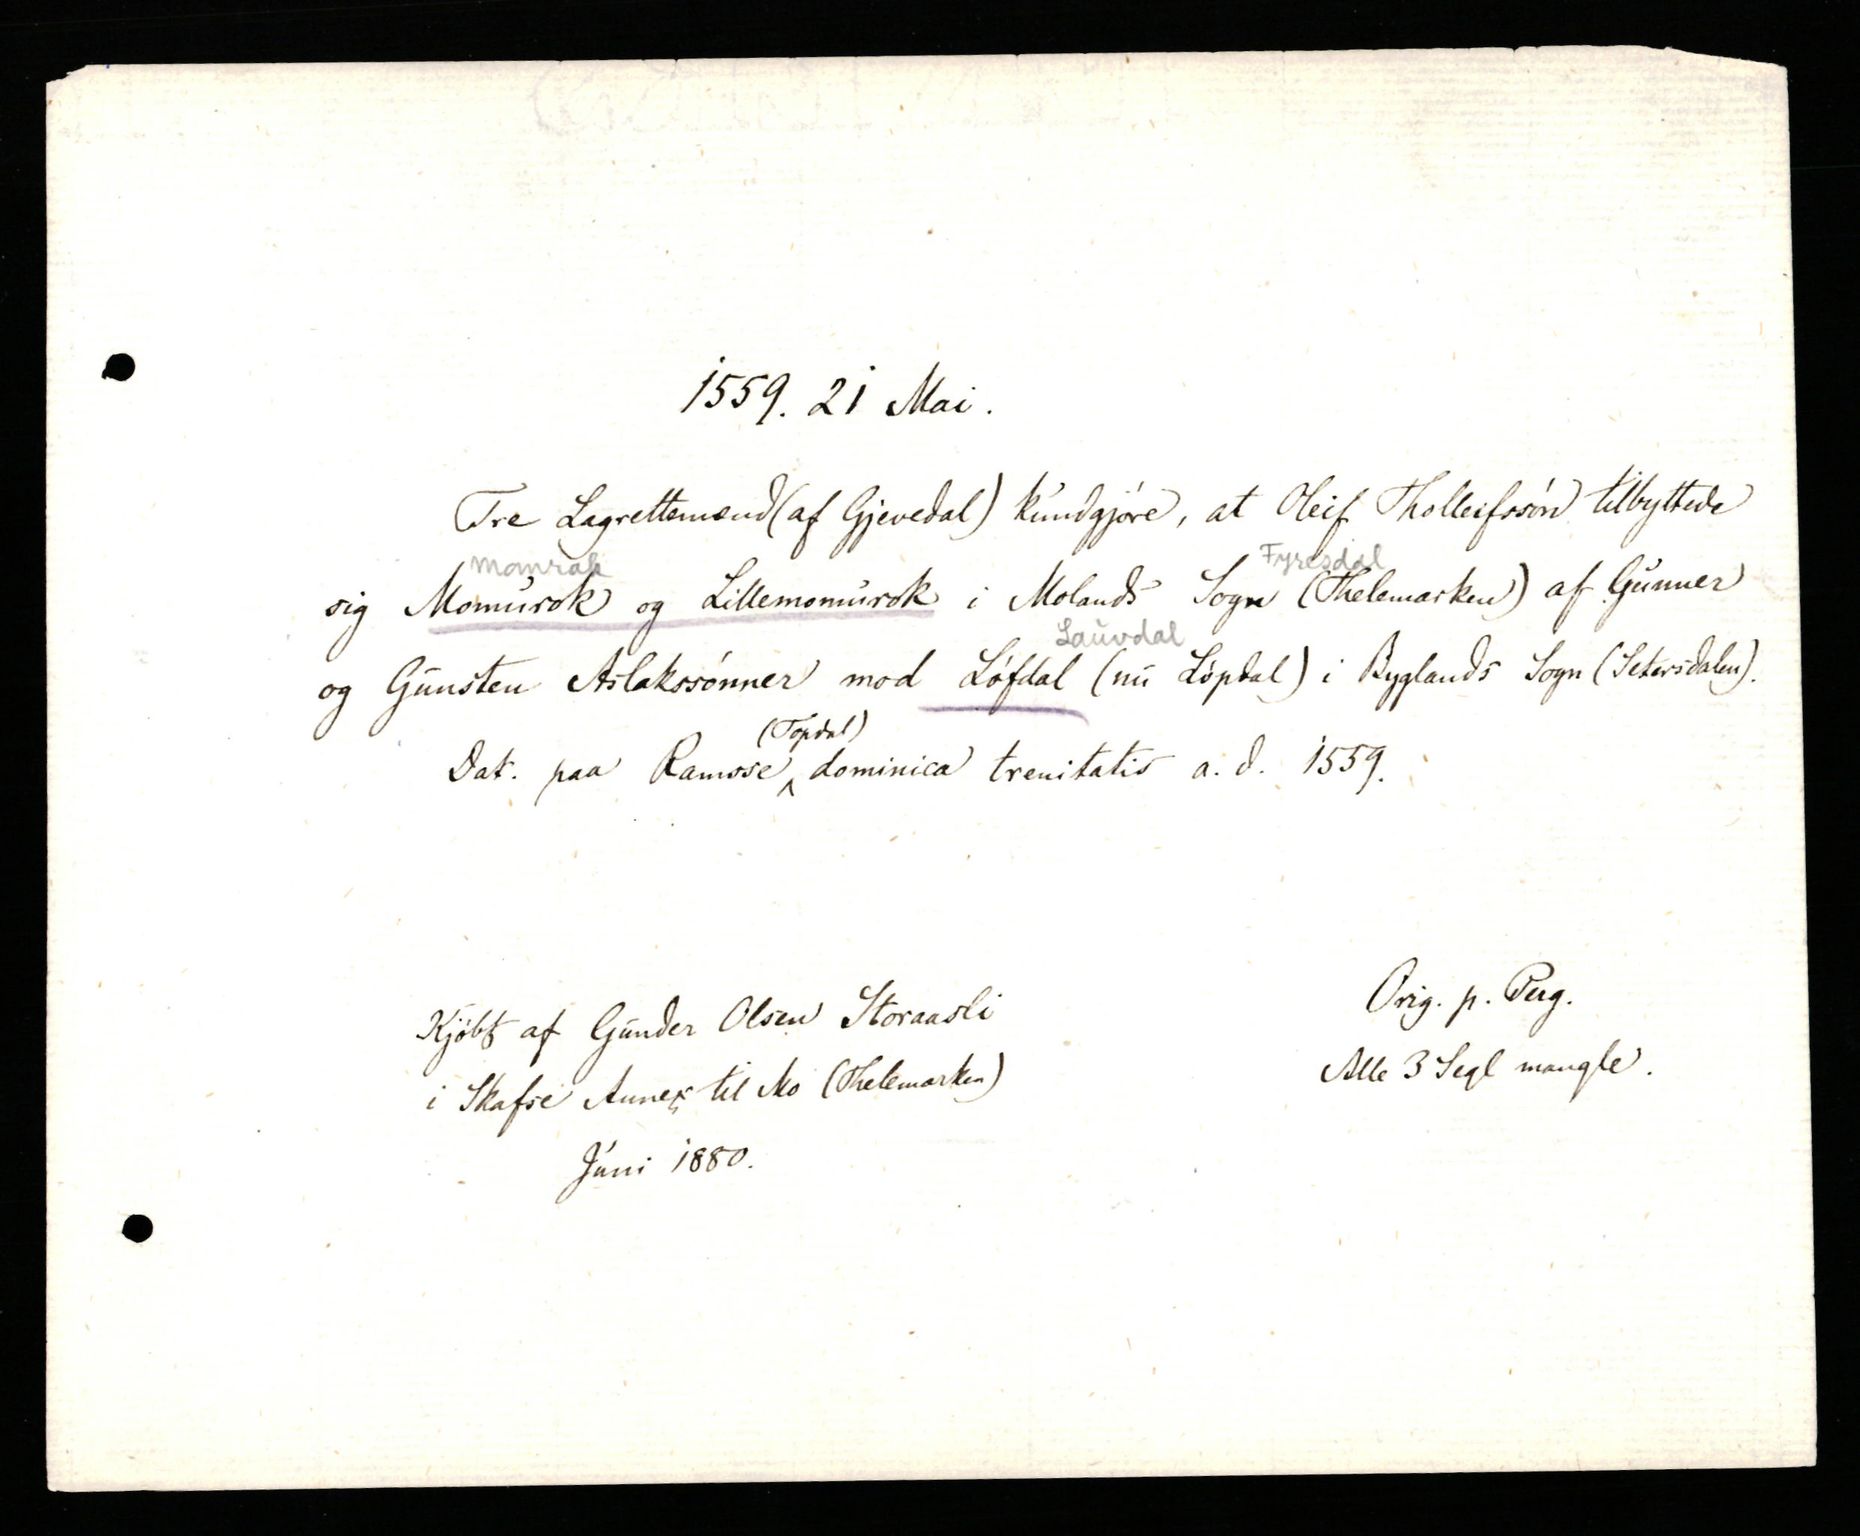 1559. 21 Mai.
Tre Lagrettemænd (af Gjevedal) kundgjöre, at Oleif Tholleifssön tilbyttede
Momrak Fyresdal
sig Momurok og Lillemomurok i Molands Sogn (Thelemarken) af Gunner
Lauvdal
og Gunsten Aslakssønner mod Løfdal (nu Löpdal) i Byglands Sogn (Setersdalen).
(Topdal)
Dat. paa Ramsse dominica trenitatis a. d. 1559.
Kjöbt af Gunder Olsen Storaasli
i Skafse Annex til Mo (Thelemarken)
Juni 1880.
Orig. p. Perg.
Alle 3 Segl mangle.